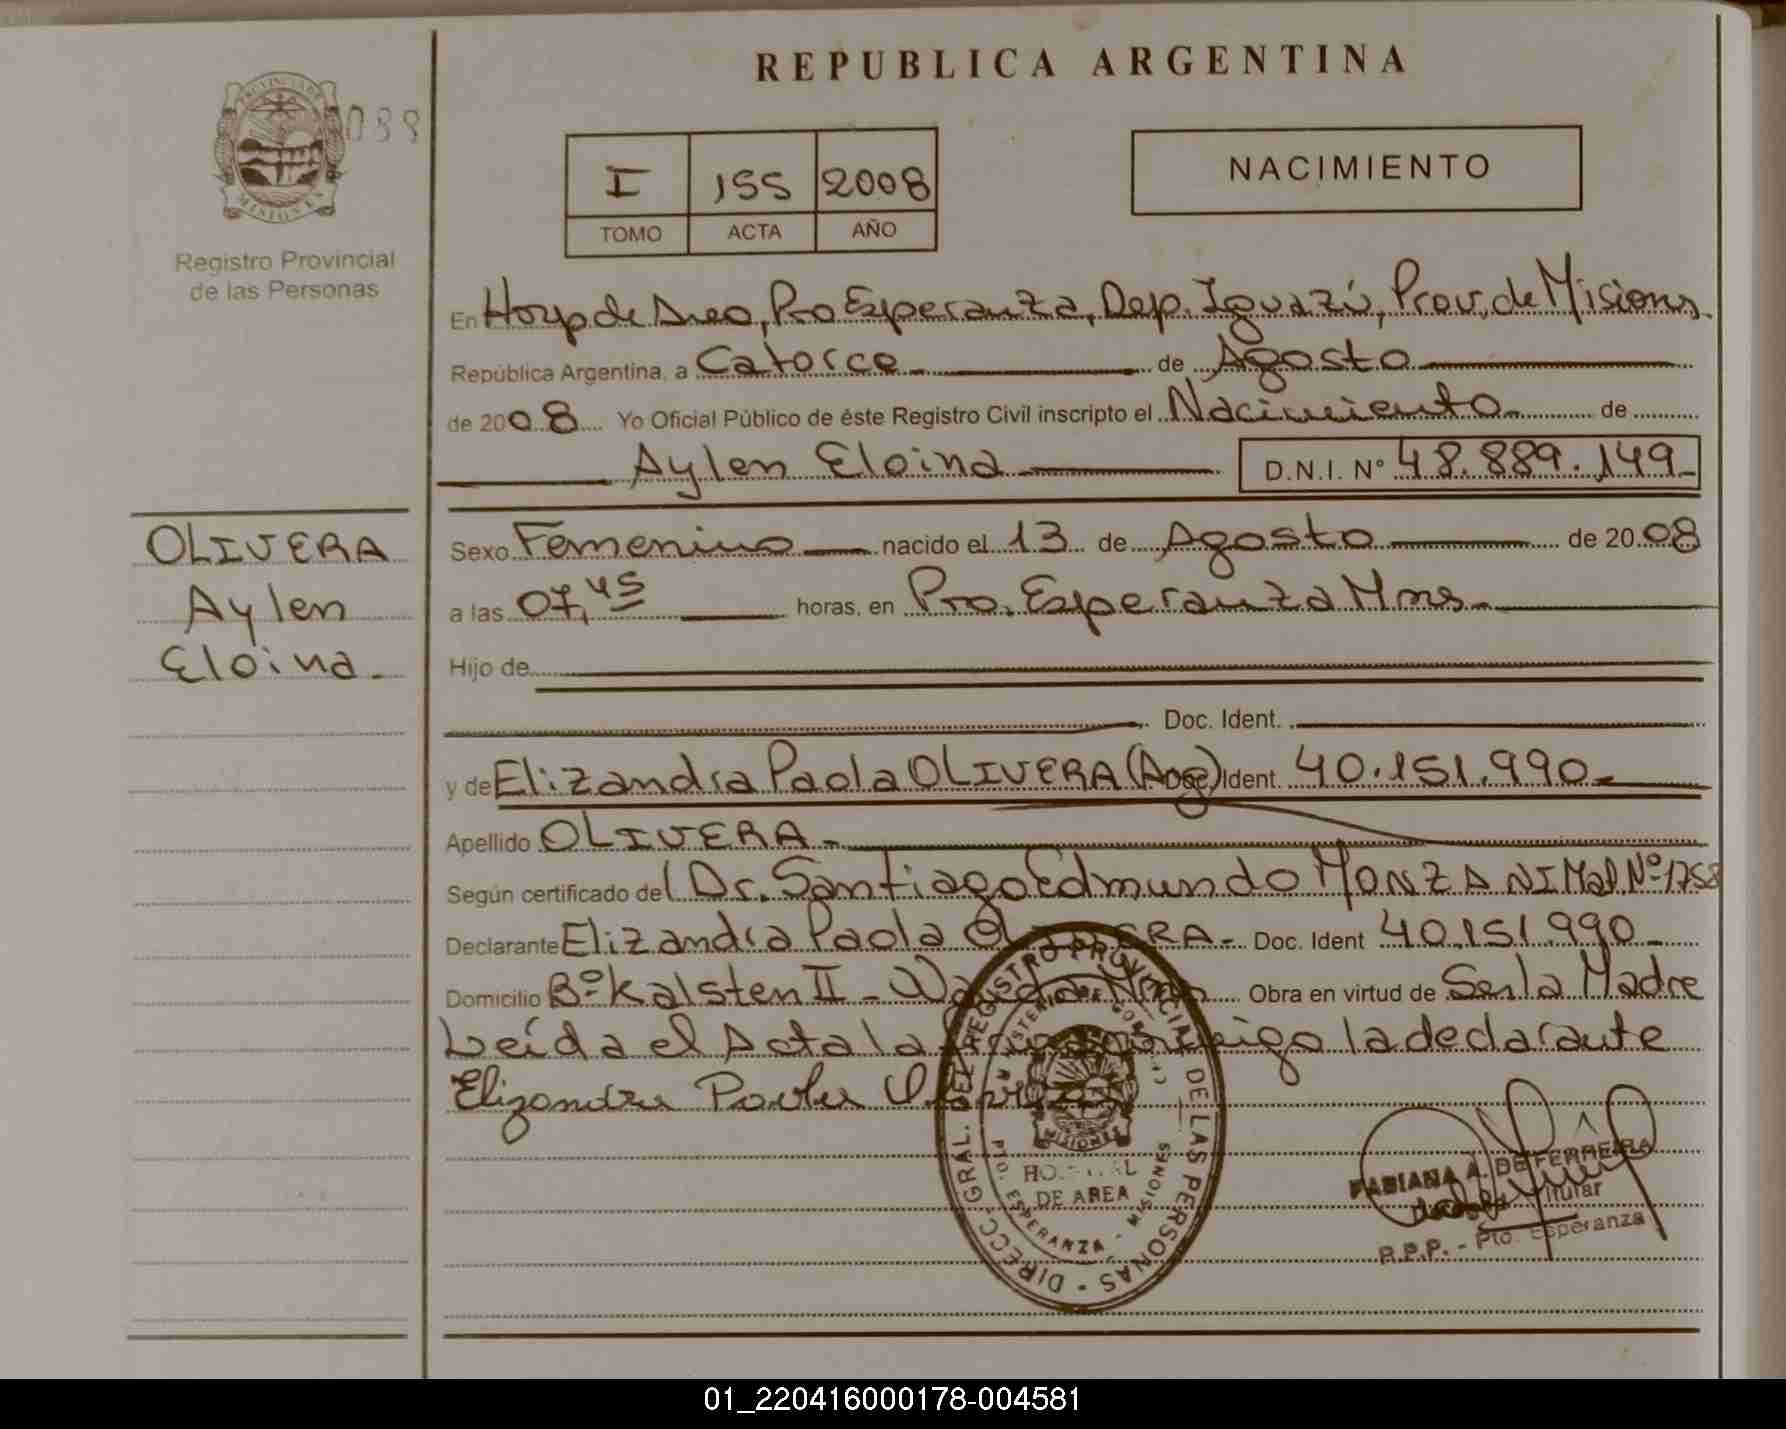 REPUBLICA ARGENTINA
PROVINCIA DE
MISIONES
088
Registro Provincial
de las Personas
I 155 2008
TOMO ACTA AÑO
NACIMIENTO
En Hosp de Area, Pto Esperanza, Dep. Iguazú, Prov. de Misiones.
República Argentina, a Catorce de Agosto
de 2008 Yo Oficial Público de éste Registro Civil inscripto el Nacimiento de
Aylen Eloina D.N.I. Nº 48.889.149
OLIVERA
Aylen
Eloina.
Sexo Femenino nacido el 13 de Agosto de 2008
a las 07,45 horas, en Pto. Esperanza Mnes.
Hijo de
Doc. Ident.
y de Elizandra Paola OLIVERA (Arg) Doc. Ident. 40.151.990
Apellido OLIVERA.
Según certificado del Dr. Santiago Edmundo MONZANI Mat Nº 1758
Declarante Elizandra Paola OLIVERA. Doc. Ident 40.151.990
Domicilio Bº Kalsten II - Wanda Mnes Obra en virtud de Ser la Madre
Leída el Acta la firma conmigo la declarante
Elizandra Paola Olivera
DIRECC. GRAL. DEL REGISTRO PROVINCIAL DE LAS PERSONAS
MINISTERIO DE GOB.
MISIONES
HOSPITAL
DE AREA
PTO. ESPERANZA - MISIONES
FABIANA A. DE FERREIRA
Titular
R.P.P. - Pto. Esperanza
01_220416000178-004581